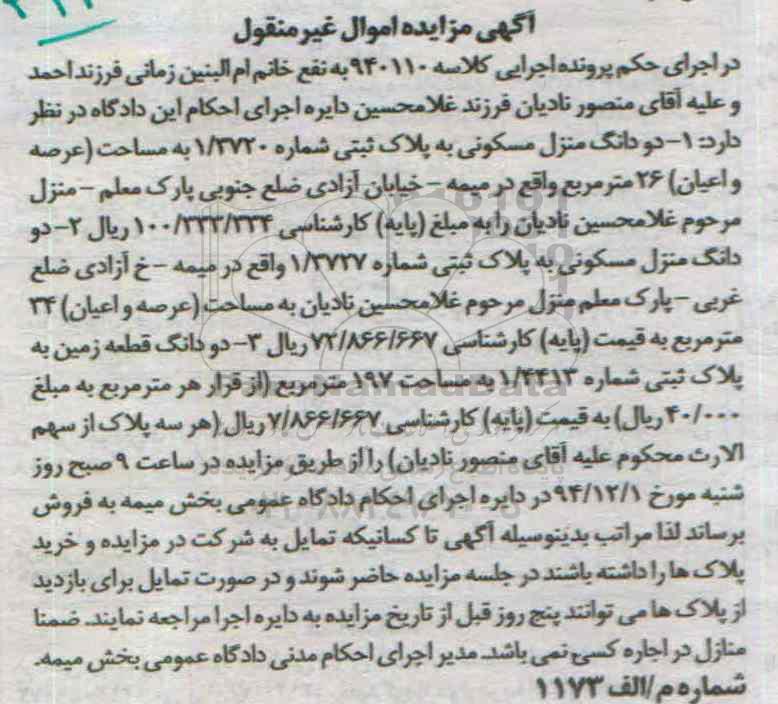 آگهی مزایده اموال غیر منقول
در اجرای حکم پرونده اجرایی کلاسه ۹۴۰۱۱۰ به نفع خانم ام البنین زمانی فرزند احمد
و علیه آقای منصور نادیان فرزند غلامحسین دایره اجرای احکام این دادگاه در نظر
دارد: ۱- دو دانگ منزل مسکونی به پلاک ثبتی شماره ۱/۳۷۲۰ به مساحت (عرصه
و اعیان) ۲۶ متر مربع واقع در میمه - خیابان آزادی ضلع جنوبی پارک معلم - منزل
مرحوم غلامحسین نادیان را به مبلغ (پایه) کارشناسی ۱۰۰/۳۳۳/۳۳۴ ریال ۲- دو
دانگ منزل مسکونی به پلاک ثبتی شماره ۱/۳۷۲۷ واقع در میمه - خ آزادی ضلع
غربی - پارک معلم منزل مرحوم غلامحسین نادیان به مساحت (عرصه و اعیان) ۳۴
مترمربع به قیمت (پایه) کارشناسی ۷۲/۸۶۶/۶۶۷ ریال ۳- دو دانگ قطعه زمین به
پلاک ثبتی شماره ۱/۴۴۱۳ به مساحت ۱۹۷ مترمربع (از قرار هر مترمربع به مبلغ
۴۰/۰۰۰ ریال) به قیمت (پایه) کارشناسی ۷/۸۶۶/۶۶۷ ریال (هر سه پلاک از سهم
الارث محکوم علیه آقای منصور نادیان) را از طریق مزایده در ساعت ۹ صبح روز
شنبه مورخ ۹۴/۱۲/۱ در دایره اجرای احکام دادگاه عمومی بخش میمه به فروش
برساند لذا مراتب بدینوسیله آگهی تا کسانیکه تمایل به شرکت در مزایده و خرید
پلاک ها را داشته باشند در جلسه مزایده حاضر شوند و در صورت تمایل برای بازدید
از پلاک ها می توانند پنج روز قبل از تاریخ مزایده به دایره اجرا مراجعه نمایند. ضمنا
منازل در اجاره کسی نمی باشد. مدیر اجرای احکام مدنی دادگاه عمومی بخش میمه.
شماره م/الف ۱۱۷۳